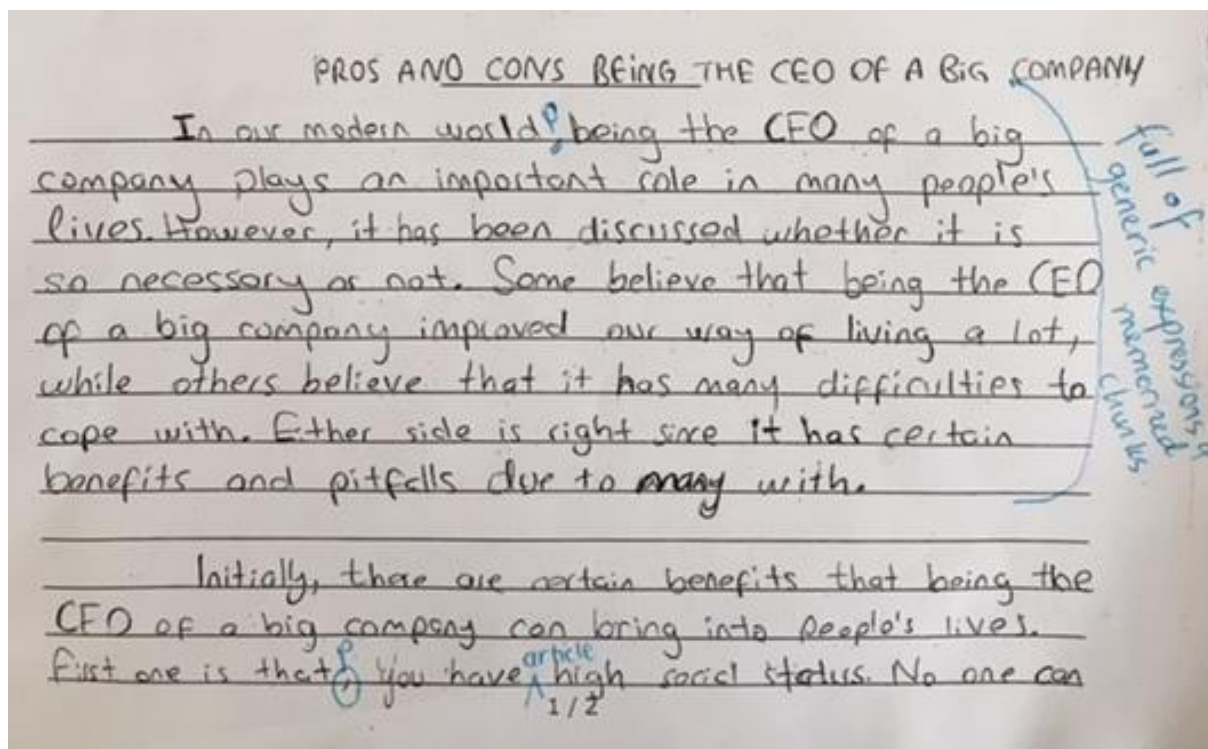 PROS AND CONS BEING THE CEO OF A BIG COMPANY
In our modern world p being the CEO of a big
company plays an important role in many people's
lives. However, it has been discussed whether it is
so necessary or not. Some believe that being the CEO
of a big company improved our way of living a lot,
while others believe that it has many difficulties to
cope with. Either side is right since it has certain
benefits and pitfalls due to many with.
full of
generic expressions,
memorized
chunks
Initially, there are certain benefits that being the
CEO of a big company can bring into people's lives.
p article
First one is that, you have high social status. No one can
1/2